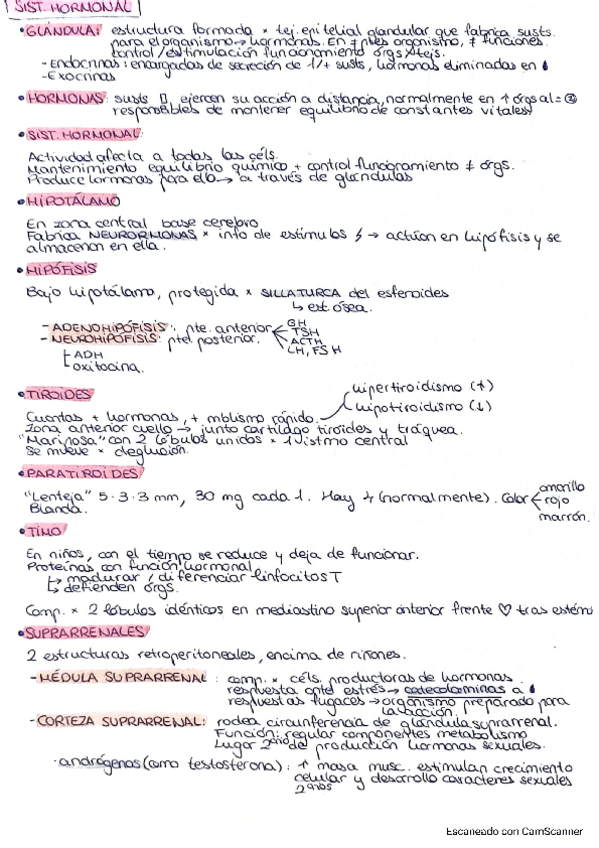 SIST. HORMONAL
• GLÁNDULA: estructura formada × tej. epitelial glandular que fabrica susts.
para el organismo → hormonas. En ≠ ptes organismo, ≠ funciones.
control / estimulación funcionamiento órgs × tejs.
- Endocrinas: encargadas de secreción de 1/+ susts, hormonas eliminadas en
- Exocrinas
• HORMONAS: susts, ejercen su acción a distancia, normalmente en ↑ órgs al =
responsables de mantener equilibrio de constantes vitales
• SIST. HORMONAL:
Actividad afecta a todas las céls.
Mantenimiento equilibrio químico + control funcionamiento ≠ órgs.
Produce hormonas para ello → a través de glándulas
• HIPOTÁLAMO
En zona central base cerebro
Fabrica NEURORMONAS × info de estímulos → actúan en hipófisis y se
almacenan en ella.
• HIPÓFISIS
Bajo hipotálamo, protegida × SILLA TURCA del esfenoides
↳ est. ósea.
- ADENOHIPÓFISIS: pte. anterior
GH
TSH
ACTH
LH, FSH
- NEUROHIPÓFISIS: pte. posterior.
ADH
oxitocina.
• TIROIDES
hipertiroidismo (↑)
hipotiroidismo (↓)
Cuantas + hormonas, + mblismo rápido.
Zona anterior cuello → junto cartílago tiroides y tráquea.
"Mariposa" con 2 lóbulos unidos × 1 istmo central
Se mueve × deglución.
• PARATIROIDES
"Lenteja" 5·3·3 mm, 30 mg cada 1. Hay 4 (normalmente). Color
amarillo
rojo
marrón.
Blanda.
• TIMO
En niños, con el tiempo se reduce y deja de funcionar.
Proteínas con función hormonal
↳ madurar / diferenciar linfocitos T
↳ defienden órgs.
Comp. × 2 lóbulos idénticos en mediastino superior anterior frente ♡ tras estérn
• SUPRARRENALES
2 estructuras retroperitoneales, encima de riñones.
- MÉDULA SUPRARRENAL: comp. × céls. productoras de hormonas
respuesta ante estrés → catecolaminas a
respuestas fugaces → organismo preparado para
la acción.
- CORTEZA SUPRARRENAL: rodea circunferencia de glándula suprarrenal.
Función: regular componentes metabolismo
Lugar 2ario de producción hormonas sexuales.
· andrógenos (como testosterona): ↑ masa musc. estimulan crecimiento
celular y desarrollo caracteres sexuales
2arios
Escaneado con CamScanner